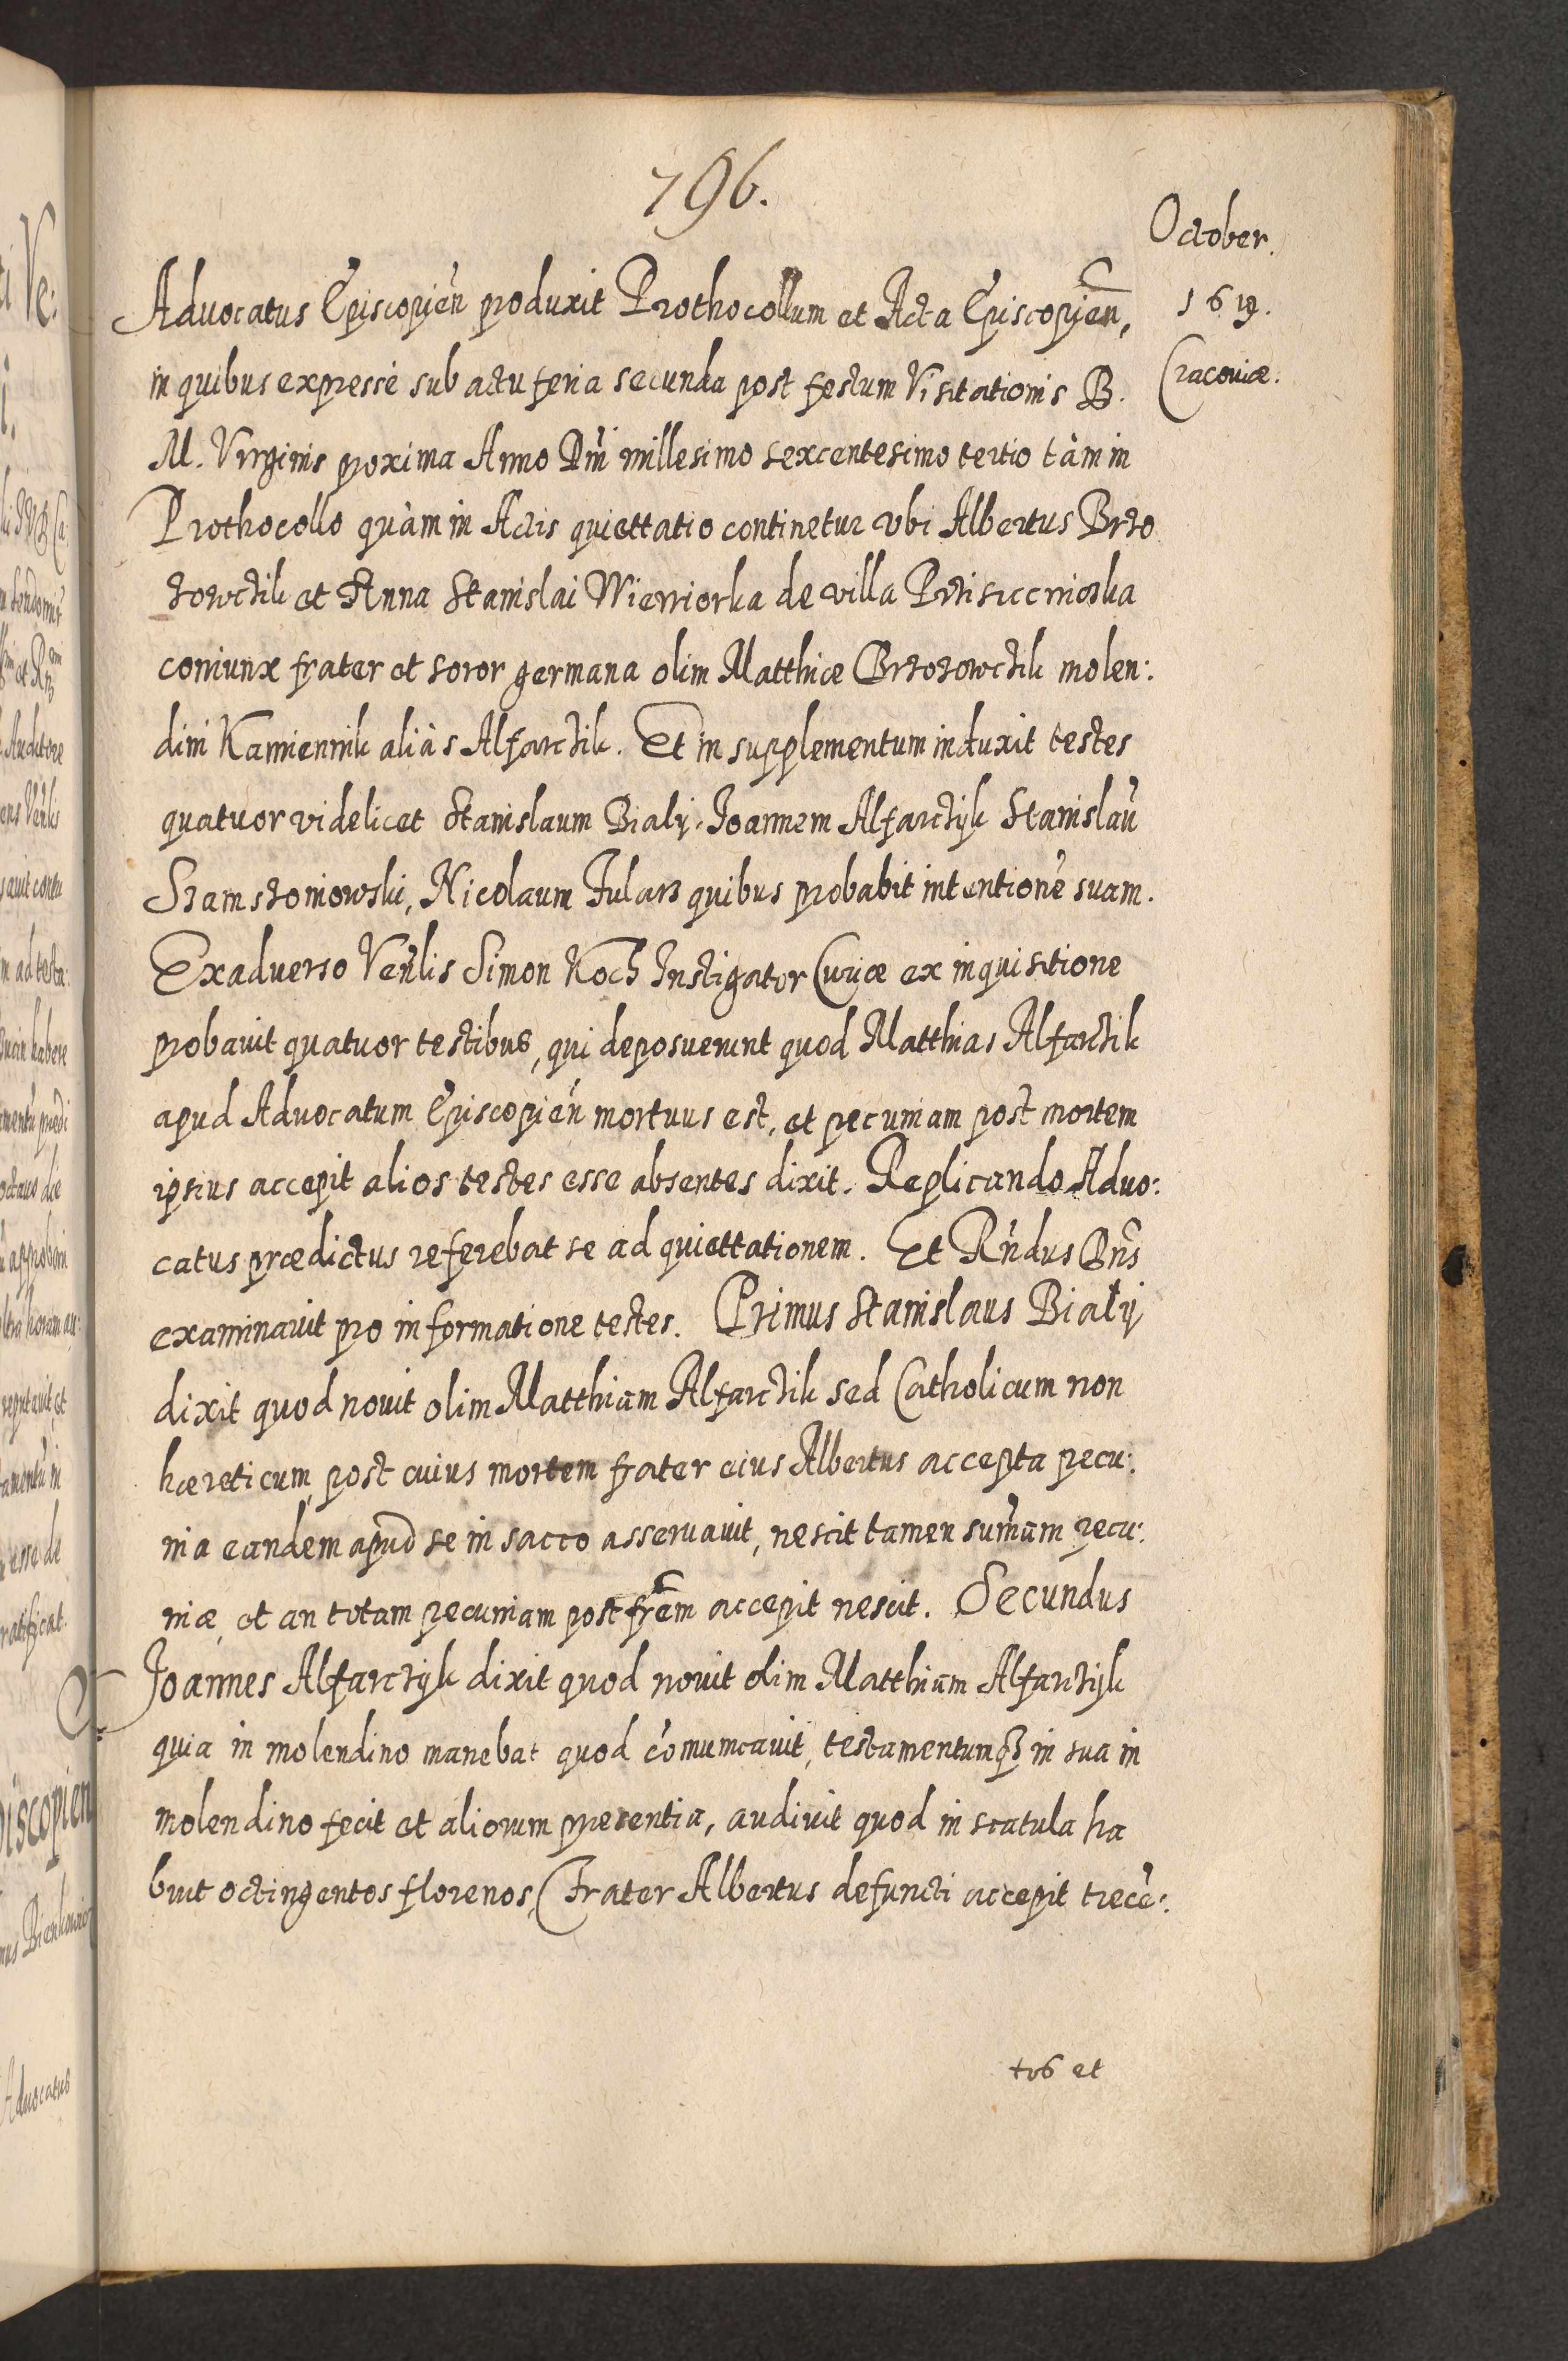 796.
October.
1619.
Cracoviæ.
Advocatus Episcopien̄ produxit Prothocollum et Acta Episcopien̄,
in quibus expresse sub actu feria secunda post festum Visitationis B.
M. Virginis proxima Anno Dn̄i millesimo sexcentesimo tertio tàm in
Prothocollo quàm in Actis quiettatio continetur vbi Albertus Brzo
zowczik et Anna Stanislai Wierriorka de villa
coniunx frater et soror germana olim Matthiæ Brzozowczik molen:
dini Kamiennik aliàs Alfarczik. Et in supplementum induxit testes
quatuor videlicet Stanislaum Bialy, Joannem Alfarczyk Stanislaū
Szamstoniowski, Nicolaum Fularz quibus probabit intentionē suam.
Exadverso Ven̄lis Simon Koch Instigator Curiæ ex inquisitione
probavit quatuor testibus, qui deposuerunt quod Matthias Alfarczik
apud Advocatum Episcopien̄ mortuus est, et pecuniam post mortem
ipsius accepit alios testes esse absentes dixit. Replicando Advo:
catus prædictus referebat se ad quiettationem. Et Rn̄dus Dn̄s
examinavit pro informatione testes. Primus Stanislaus Biały
dixit quod novit olim Matthiam Alfarczik sed Catholicum non
hæreticum, post cuius mortem frater eius Albertus accepta pecu:
nia eandem apud se in sacco asservavit, nescit tamen sum̄am pecu:
niæ, et an totam pecuniam post fr̄em accepit nescit. Secundus
Joannes Alfarczyk dixit quod novit olim Matthiam Alfarczyk
quia in molendino manebat quod cōmunicavit, testamentumqȝ in sua in
molendino fecit et aliorum presentia, audivit quod in scatula ha
buit octingentos florenos, Frater Albertus defuncti accepit trecē:
tos et